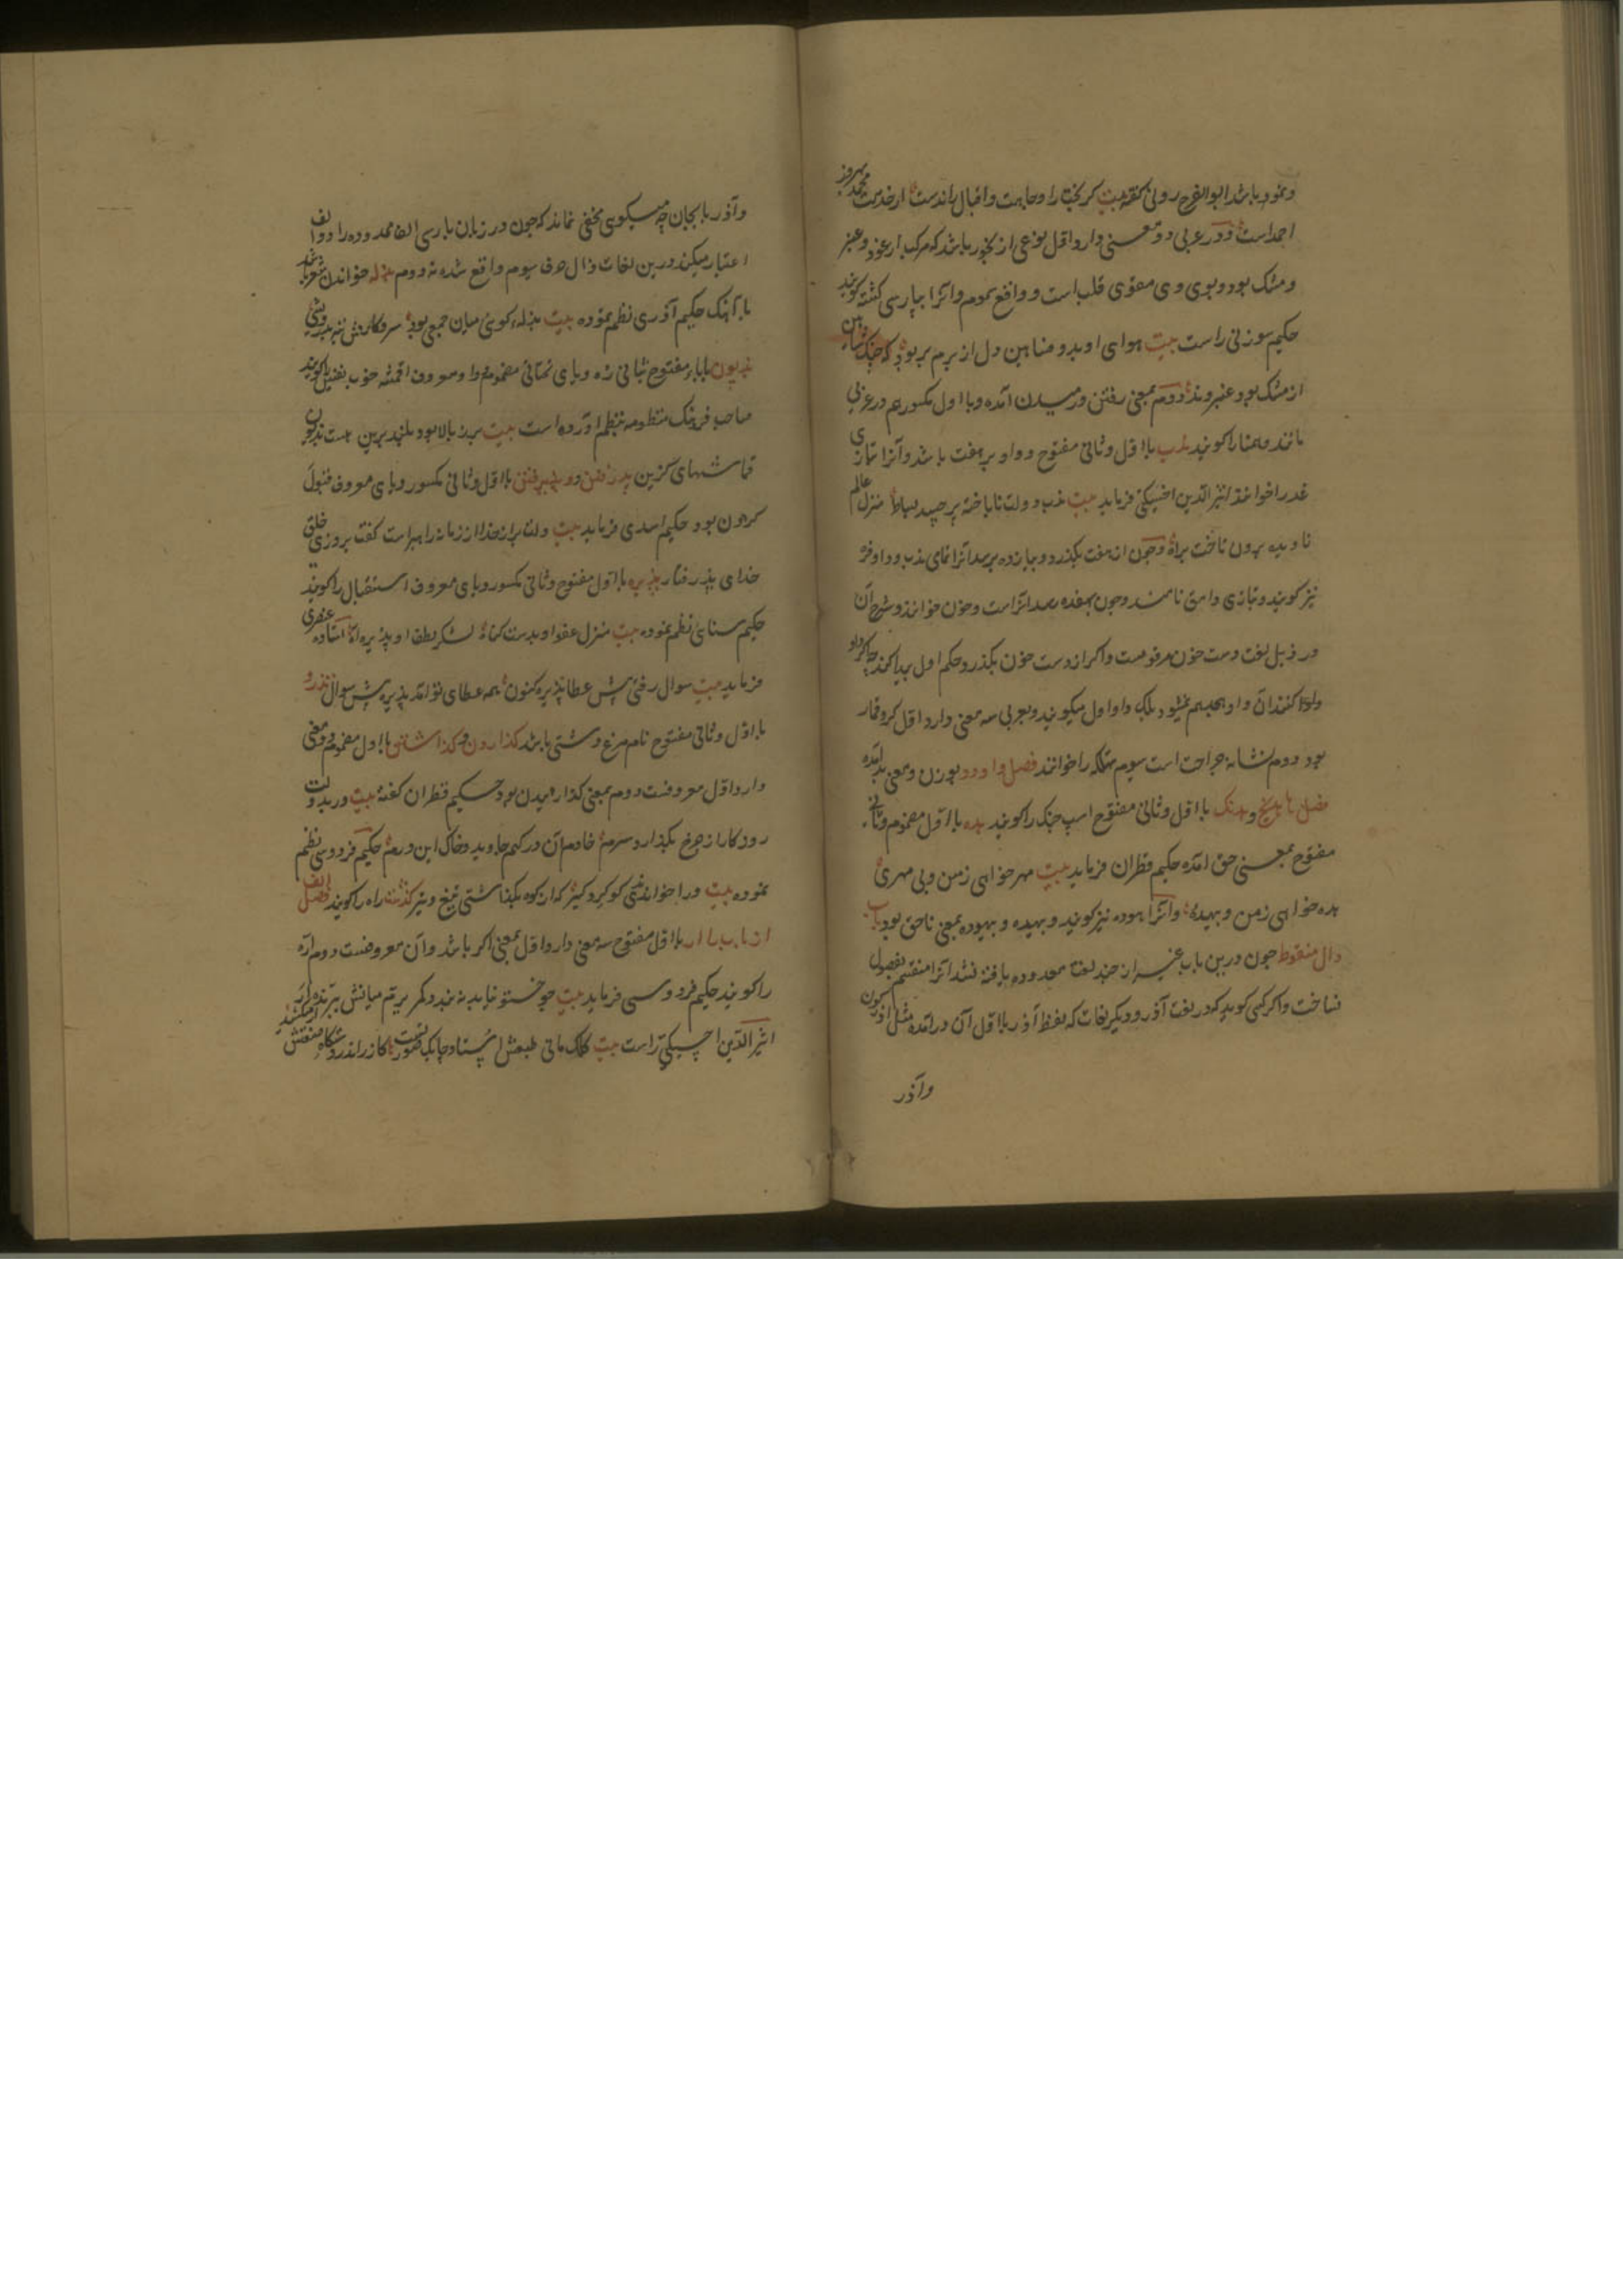 و نمودار باشد ابوالفرج رونی گفته بیت گر بخت را وجاهت و اقبال راندست از خدمت محمد بهروز
احمد است و در عربی دو معنی دارد اول نوعی از بخور باشد که مرکب از عود و عنبر
و مشک بود و بوی وی مقوی قلب است و دافع سموم و آنرا بپارسی کشته گویند
حکیم سوزنی راست بیت هوای او بدو شاهین دل از برم بربود که چنگ شاهین
از مشک بود و عنبر و ند دوم بمعنی رفتن و رسیدن آمده و با اول مکسور هم در عربی
مانند و همتا را گویند ندب با اول و ثانی مفتوح و داو بر هفت باشد و آنرا بتازی
عذرا خوانند اثیر الدین اخسیکتی فرماید بیت ندب دولت ناباخته برچید بساط منزل عالم
نادیده برون تاخت براه و چون از هفت بگذرد و بیازده برسد آنرا تمامی ندب و داو فره
نیز گویند و بتازی وامق نامند و چون بهفده رسد آنرا دست خون خوانند و شرح آن
در ذیل لغت دست خون مرقومست و اگر از دست خون بگذرد حکم اول پیدا کند چه اگر داو
داو کنند آن داو بهیهم نمیشود بلکه داو اول میگویند و بعربی سه معنی دارد اول گرو قمار
بود دوم نشانه جراحت است سوم تهلکه را خوانند فصل واو ودود بوزن و معنی بد آمده
فصل ها هدنج و هدنک با اول و ثانی مفتوح اسپ خنک را گویند هده با اول مضموم و ثانی
مفتوح بمعنی حق آمده حکیم قطران فرماید بیت مهر خواهی زمن و بی مهری
هده خواهی زمن و بیهده و آنرا هوده نیز گویند و بیهده و بیهوده بمعنی ناحق بود باب
ذال منقوط چون درین باب غیر از چند لغت معدوده یافته نشد آنرا منقسم بفصول
نساخت و اگر کسی گوید که در لغت آذر و دیگر لغات که لفظ آذر با اول آن در آمده مثل آذرگون
و آذر
و آذربایجان چه میگوی مخفی نماند که چون در زبان پارسی الف ممدوده را دو الف
اعتبار میکنند درین لغات ذال حرف سیوم واقع شده نه دوم بذله خواندن شعر باشد
با آهنگ حکیم آذری نظم نموده بیت بذله گوی میان جمعی بود سر و کارش به بدویتی
بذیون با باء مفتوح بثانی زده و یای تحتانی مضموم و واو معروف اقمشه خوب نفیس را گویند
صاحب فرهنگ منظومه بنظم آورده است بیت برز بالا بود بلند برین هست بذیون
قماشهای گزین پذرفتن و پذیرفتن با اول و ثانی مکسور و یای معروف قبول
کردن بود حکیم اسدی فرماید بیت دلت پر از خدا از زمانه را مبراست گفت بروزی خلق
خدای پذرفتار پذیره با اول مفتوح و ثانی مکسور و یای معروف استقبال را گویند
حکیم سنائی نظم نموده بیت منزل عفو او بدست گناه لشکر لطف او پذیره آه استاد عنصری
فرماید بیت سوال رفتی پیش عطا پذیره کنون همه عطای تو آمد پذیره پیش سوال تذرو
با اول و ثانی مفتوح نام مرغ دشتی باشد گذاردن و گذاشتن با اول مضموم دو معنی
دارد اول معروفست دوم بمعنی گذارانیدن بود حکیم قطران گفته بیت و ربدولت
روزکار از چرخ بگذارد سرم خادم آن درگهم جاوید و خاک این درم حکیم فردوسی نظم
نموده بیت ورا خواندی کو گیرو گیر که از کوه بگذاشتی تیغ و تیر گذشته راه را گویند فصل الف
از باب را ار با اول مفتوح سه معنی دارد اول بمعنی اگر باشد و آن معروفست دوم اره
را گویند حکیم فردوسی فرماید بیت چو خستو نیاید به بند و کمر برم میانش ببرنده ار
اثیر الدین اخسیکتی راست بیت کلک مانی طبعش استاد چابک صورت کازر اندر نقش